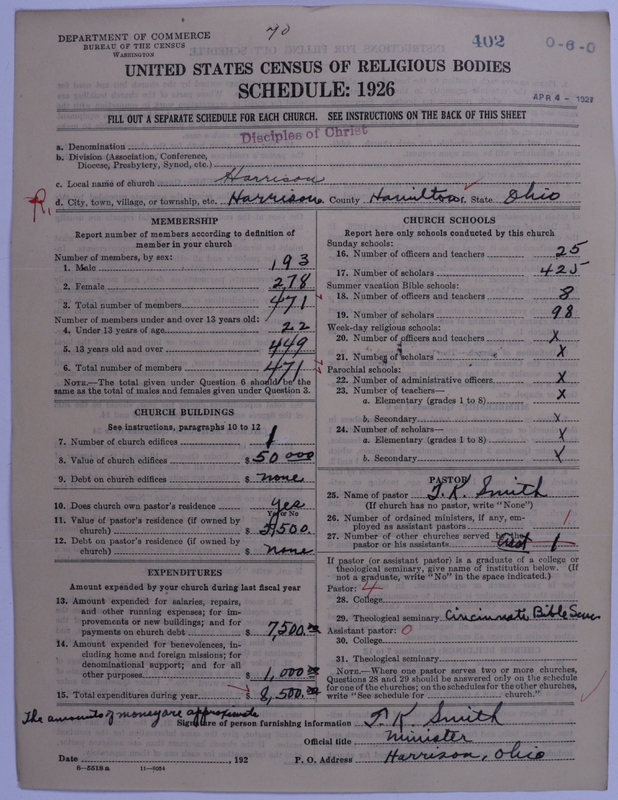 70
DEPARTMENT OF COMMERCE
BUREAU OF THE CENSUS
WASHINGTON
402
0-6-0
UNITED STATES CENSUS OF RELIGIOUS BODIES
SCHEDULE: 1926
APR 4 - 1927
FILL OUT A SEPARATE SCHEDULE FOR EACH CHURCH. SEE INSTRUCTIONS ON THE BACK OF THIS SHEET
Disciples of Christ
a. Denomination
b. Division (Association, Conference,
Diocese, Presbytery, Synod, etc.)
c. Local name of church Harrison
d. City, town, village, or township, etc. Harrison County Hamilton State Ohio
MEMBERSHIP
Report number of members according to definition of
member in your church
Number of members, by sex:
1. Male 193
2. Female 278
3. Total number of members 471
Number of members under and over 13 years old:
4. Under 13 years of age 22
5. 13 years old and over 449
6. Total number of members 471
NOTE.—The total given under Question 6 should be the
same as the total of males and females given under Question 3.
CHURCH BUILDINGS
See instructions, paragraphs 10 to 12
7. Number of church edifices 1
8. Value of church edifices $ 50 000
9. Debt on church edifices $ none
10. Does church own pastor's residence yes
Yes or No
11. Value of pastor's residence (if owned by
church) $ 3,500.
12. Debt on pastor's residence (if owned by
church) $ none
EXPENDITURES
Amount expended by your church during last fiscal year
13. Amount expended for salaries, repairs,
and other running expenses; for im-
provements or new buildings; and for
payments on church debt $ 7,500.00
14. Amount expended for benevolences, in-
cluding home and foreign missions; for
denominational support; and for all
other purposes $ 1,000.00
15. Total expenditures during year $ 8,500.00
CHURCH SCHOOLS
Report here only schools conducted by this church
Sunday schools:
16. Number of officers and teachers 25
17. Number of scholars 425
Summer vacation Bible schools:
18. Number of officers and teachers 8
19. Number of scholars 98
Week-day religious schools:
20. Number of officers and teachers X
21. Number of scholars X
Parochial schools:
22. Number of administrative officers X
23. Number of teachers—
a. Elementary (grades 1 to 8) X
b. Secondary X
24. Number of scholars—
a. Elementary (grades 1 to 8) X
b. Secondary X
PASTOR
25. Name of pastor T. K. Smith
(If church has no pastor, write "None")
26. Number of ordained ministers, if any, em-
ployed as assistant pastors 1
27. Number of other churches served by the
pastor or his assistants 1
If pastor (or assistant pastor) is a graduate of a college or
theological seminary, give name of institution below. (If
not a graduate, write "No" in the space indicated.)
Pastor: 4
28. College
29. Theological seminary Cincinnati Bible Sem
Assistant pastor: 0
30. College
31. Theological seminary
NOTE.—Where one pastor serves two or more churches,
Questions 28 and 29 should be answered only on the schedule
for one of the churches; on the schedules for the other churches,
write "See schedule for church."
The amounts of money are approximate
Signature of person furnishing information T. K. Smith
Official title Minister
Date , 192 P. O. Address Harrison, Ohio
8—5518a 11—9354